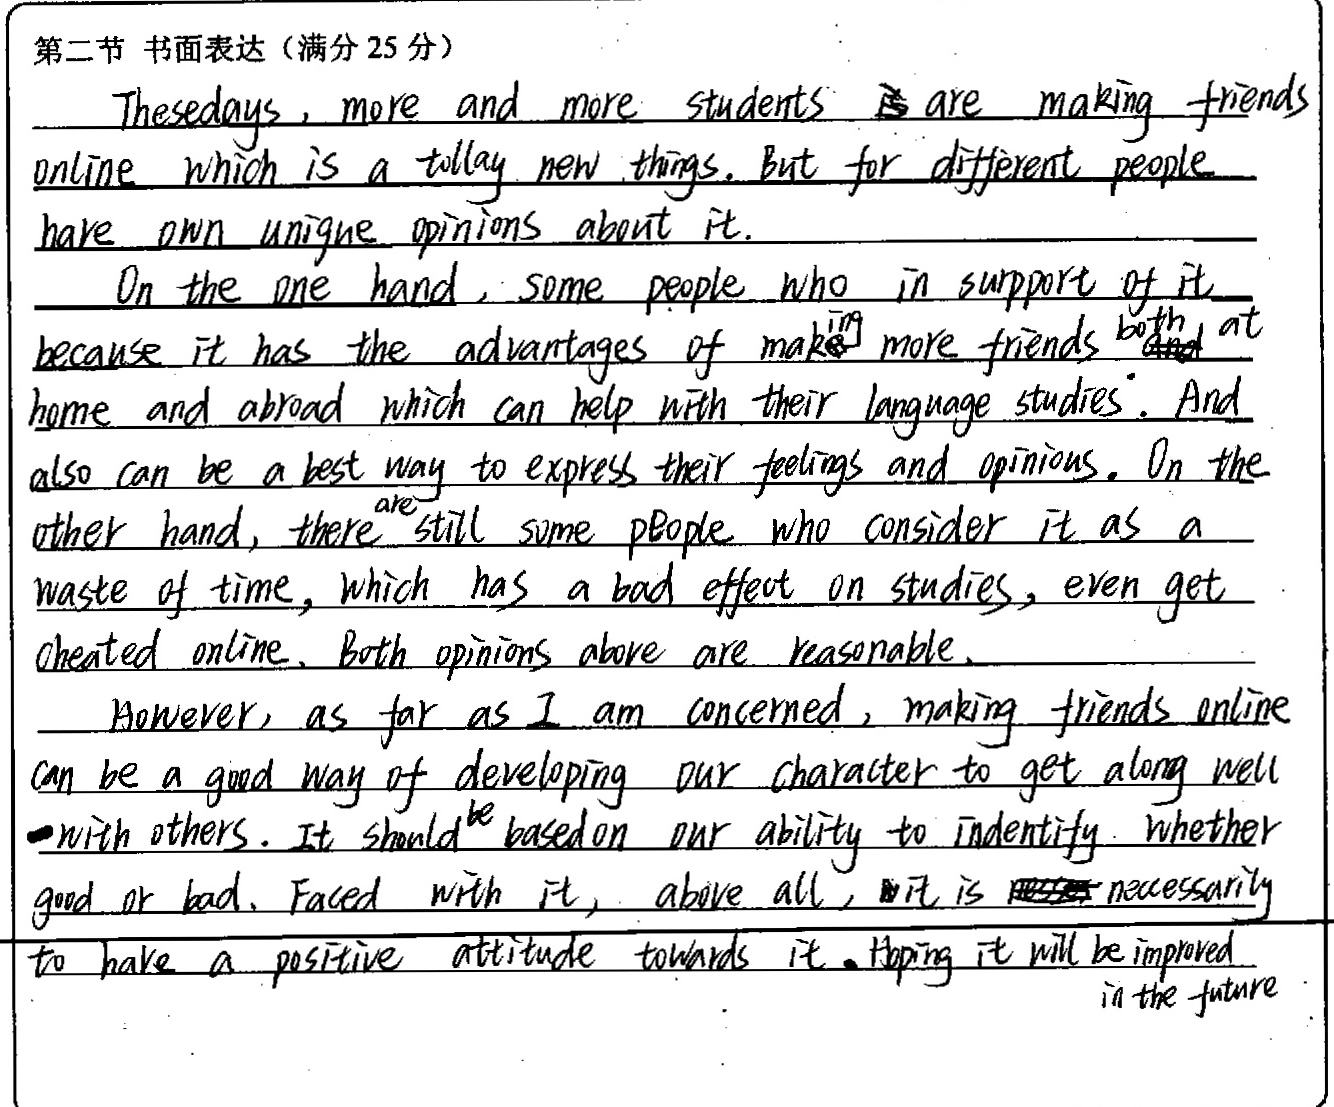 第二节 书面表达（满分 25 分）
Thesedays, more and more students are making friends
online which is a tollay new things. But for different people
have own unique opinions about it.
On the one hand, some people who in surpport of it
because it has the advantages of making more friends both at
home and abroad which can help with their language studies. And
also can be a best way to express their feelings and opinious. On the
other hand, there are still some people who consider it as a
waste of time, which has a bad effect on studies, even get
cheated online. Both opinions above are reasonable.
However, as far as I am concerned, making friends online
can be a good way of developing our character to get along well
with others. It should be based on our ability to indentify whether
good or bad. Faced with it, above all, it is neccessarily
to have a positive attitude towards it. Hoping it will be improved
in the future